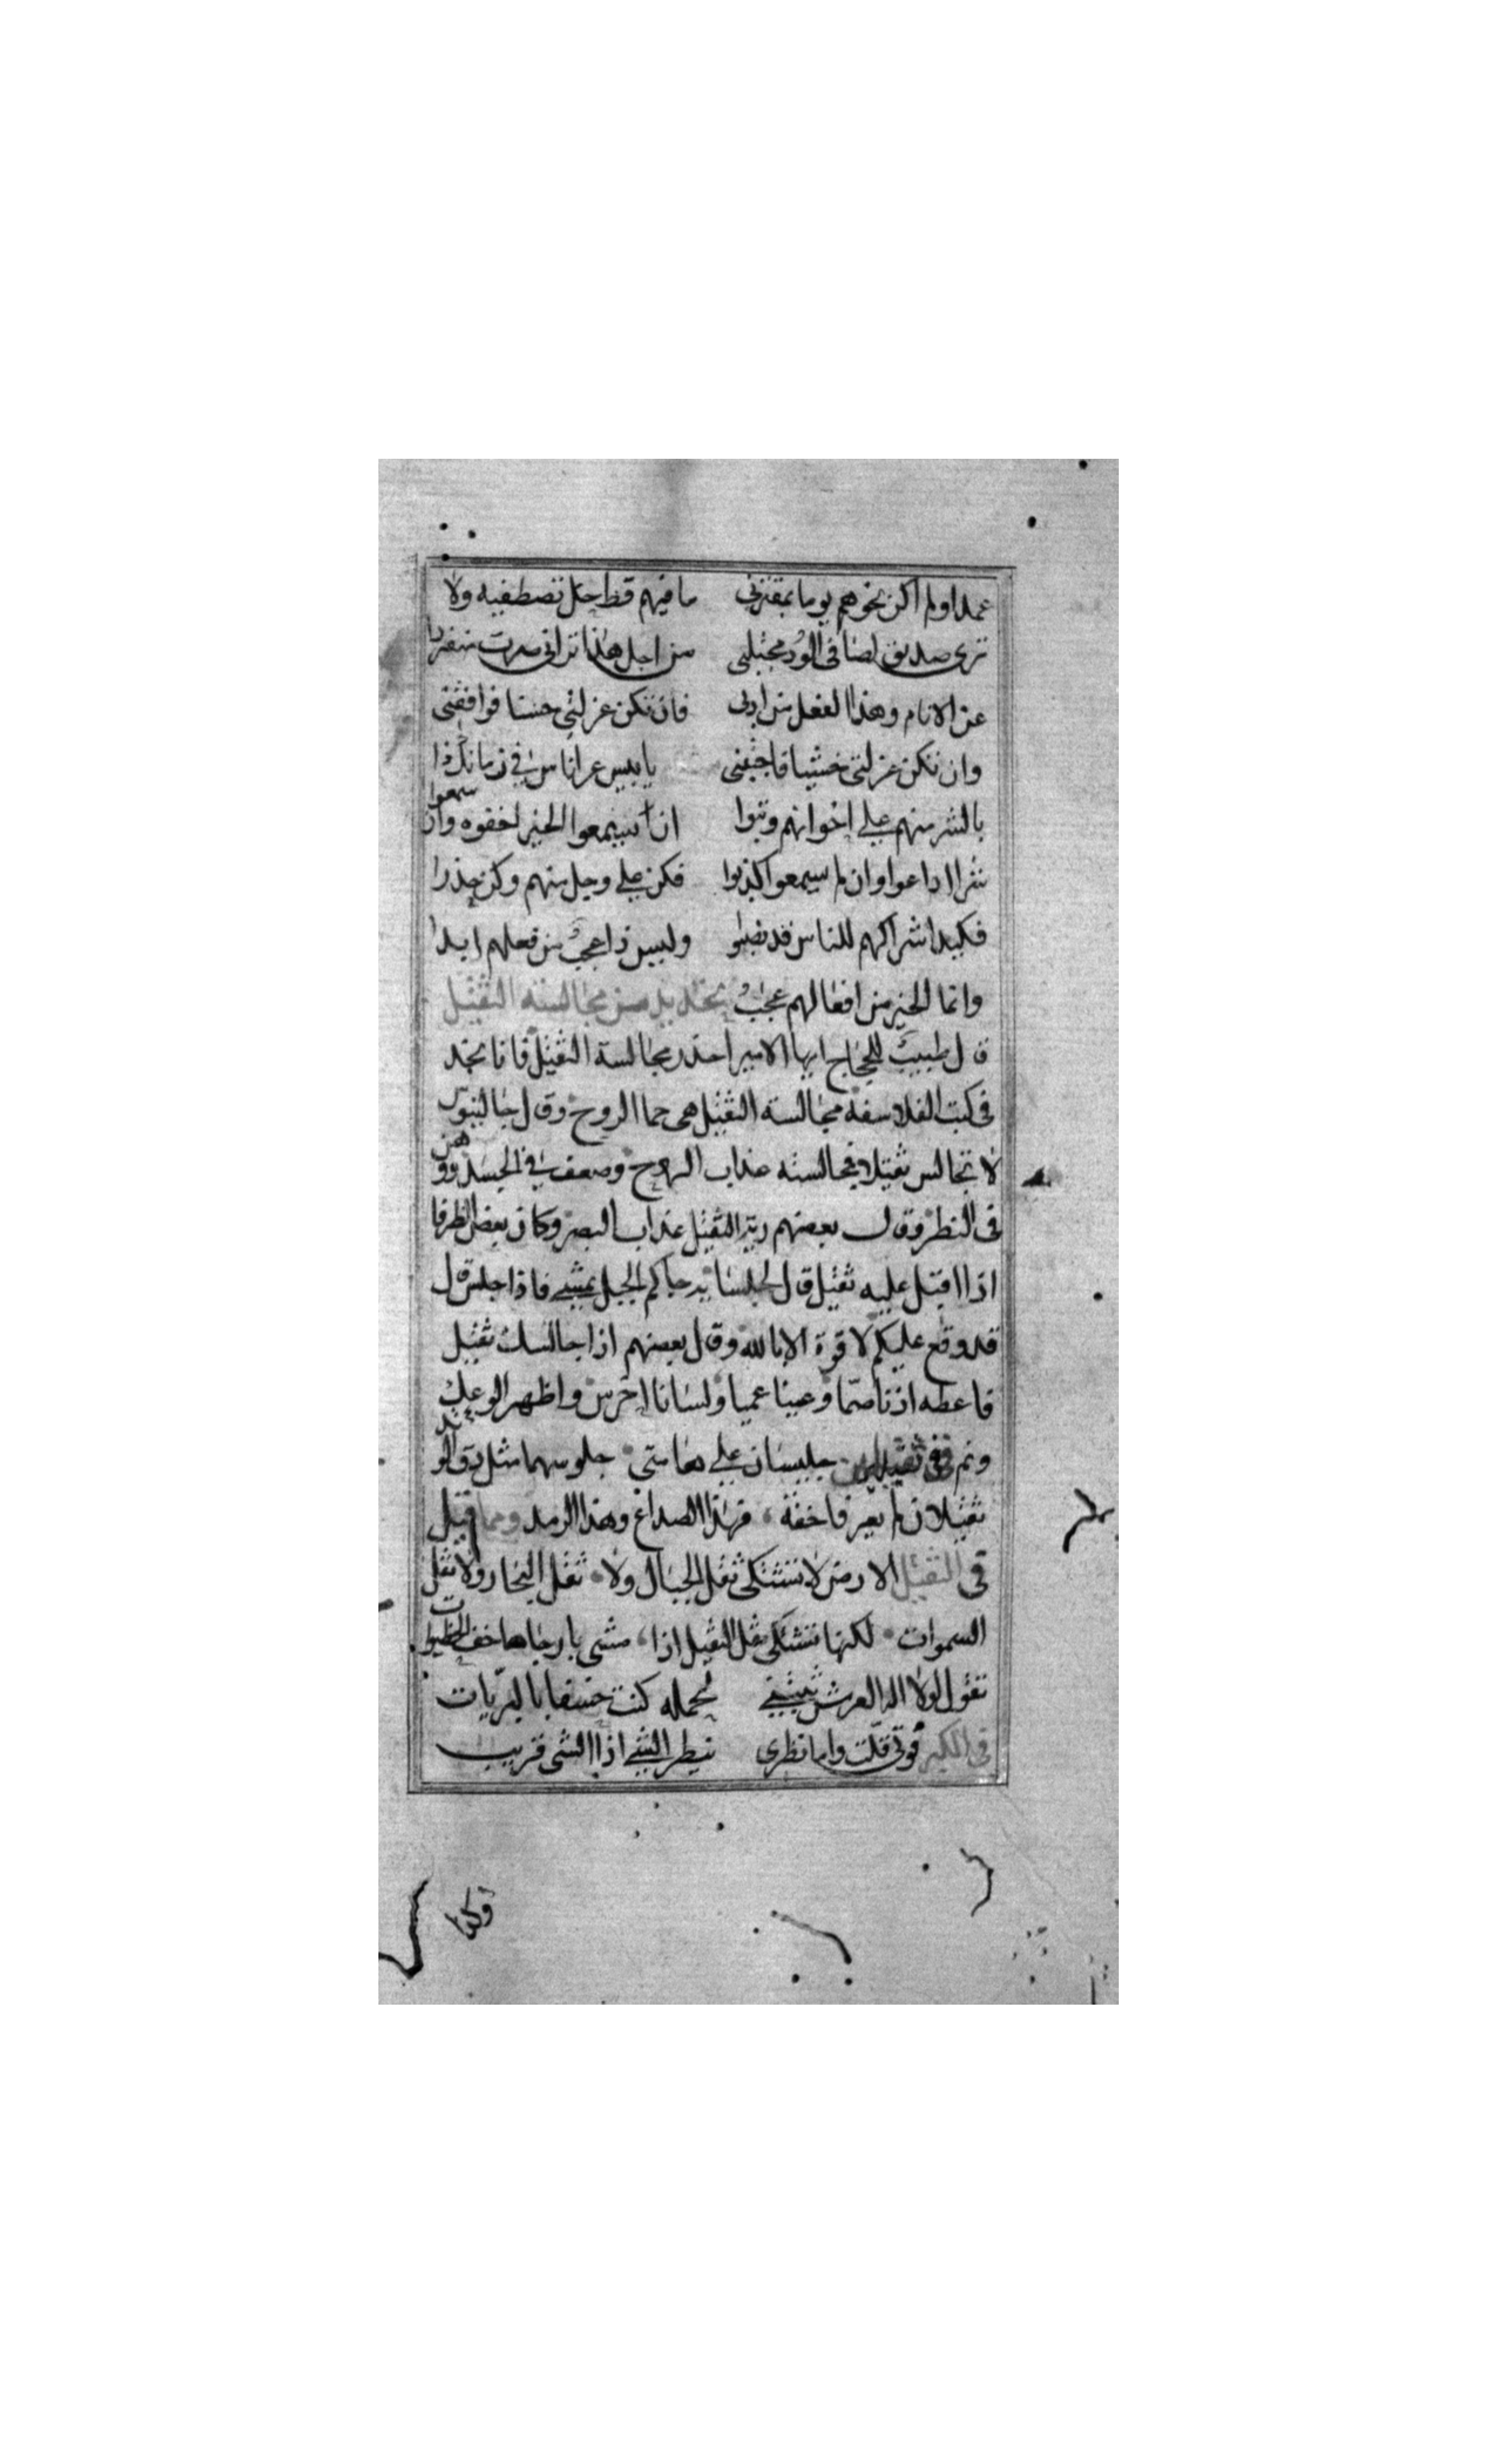 عمدا ولم اكن نحوهم يوما بمقترنى ما فيهم قط خل تصطفيه ولا
ترى صديق لصنا فى الود مجتلبى من اجل هذا ترانى صرت منفردا
عن الانام وهذا الفعل من ادبى فان تكن عزلتى حسنا فوافقنى
وان تكن عزلتى خشيا فاجثبنى يا بيس عر اناس فى زمانك ذا
بالشر منهم على اخوانهم وثبوا ان يسمعوا الخير اخفوه وان سمعوا
شرا اذاعوا وان لم يسمعوا كذبوا فكن على وجل منهم وكن حذرا
فكيد اشراكهم للناس قد نصبو وليس ذا عجب من فعلهم ابدا
وانما الخير من افعالهم عجب تحذير من مجالسة الثقيل
قال طبيب للحجاج ايها الامير احذر مجالسة الثقيل فانا نجد
فى كتب الفلاسفة مجالسة الثقيل هى حما الروح وقال جالينوس
لا تجالس ثقيلا فمجالسته عذاب الروح وضعف فى الجسد ووهن
فى النظر وقال بعضهم رية الثقيل عذاب البصر وكان بعض الظرفا
اذا اقبل عليه ثقيل قال لجلسايه جاكم الجبل يمشى فاذا جلس قال
قد وقع عليكم لا قوة الا بالله وقال بعضهم اذا جالسك ثقيل
فاعطه اذنا صما وعينا عميا ولسانا اخرس واظهر الوعك
ونم فى ثقيلين جليسان على هامتى جلوسهما مثل دق الوتد
ثقيلان لم يعرفا خفة فهذا الصداع وهذا الرمد ومما قيل
فى الثقيل الارض لا تشتكى ثقل الجبال ولا ثقل البحار ولا ثقل
السموات لكنها تشتكى ثقل الثقيل اذا مشى بارجاها خف الخطيوات
تقول لولا اله العرش ثبتنى لحمله كنت خسفا بالبريات
فى الكبر قوتى قلت واما نظرى ينظر الشى اذا الشى قريب
وكذا